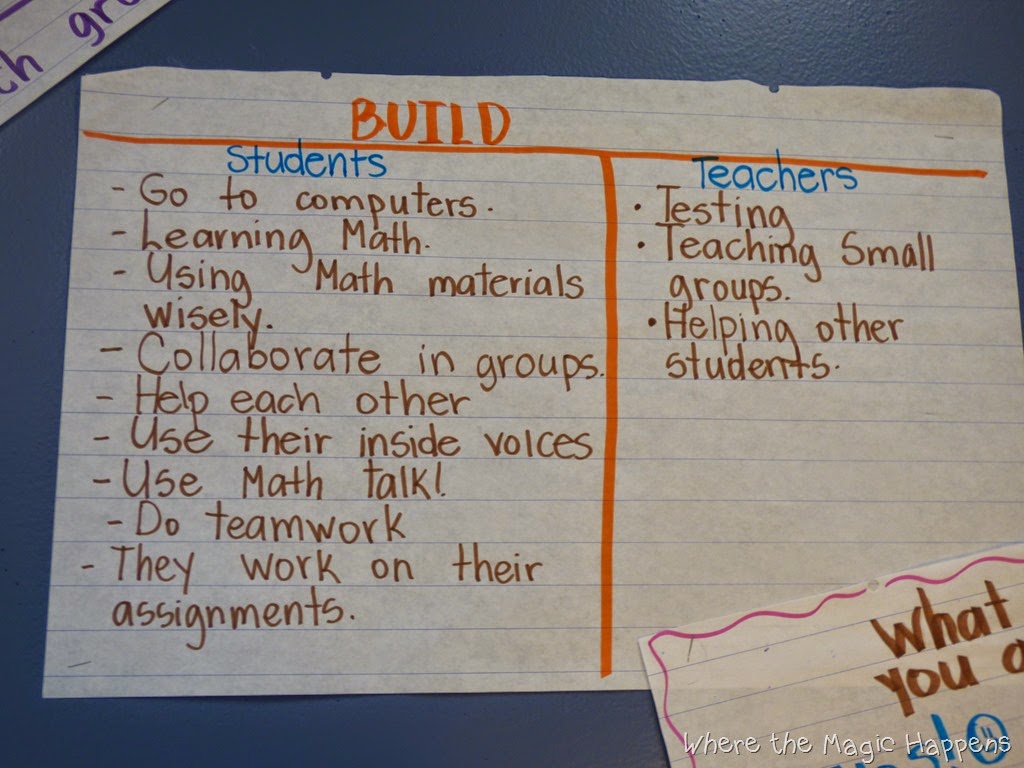 BUILD
Students
- Go to computers.
- Learning Math.
- Using Math materials
wisely.
- Collaborate in groups.
- Help each other
- Use their inside voices
- Use Math talk!
- Do teamwork
- They work on their
assignments.
Teachers
• Testing
• Teaching Small
groups.
• Helping other
students.
What
you
Where the Magic Happens